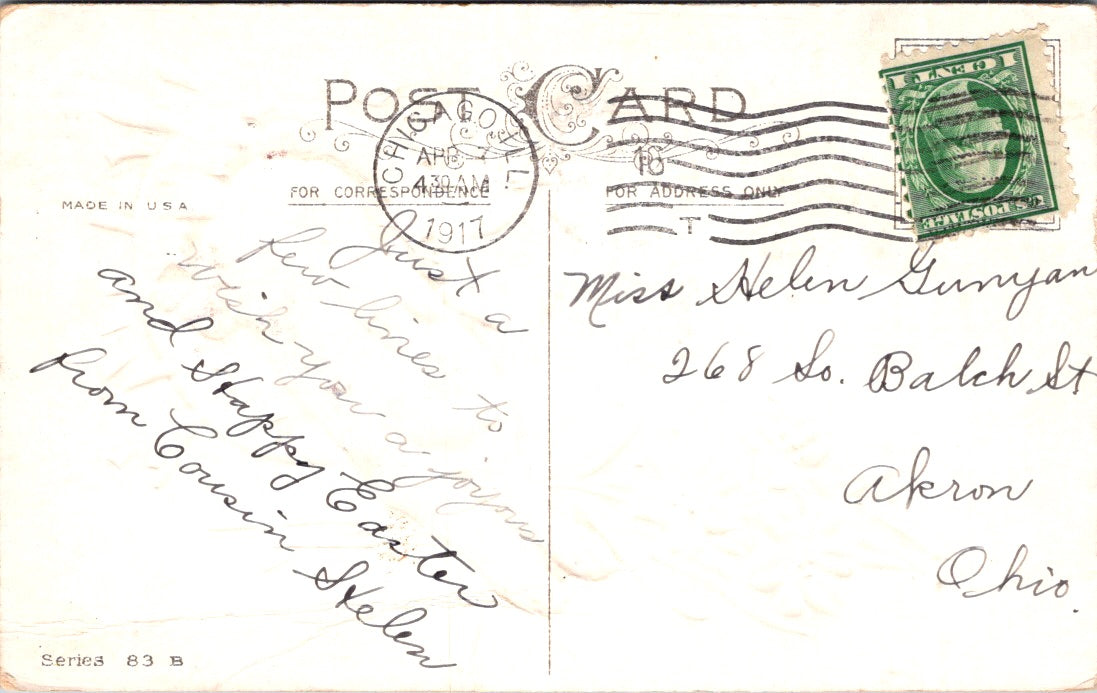 POST CARD
CHICAGO, ILL.
A
APR
4:30 AM
1917
16
T
FOR CORRESPONDENCE
FOR ADDRESS ONLY
MADE IN USA
U.S. POSTAGE
1 CENT 1
Just a
few lines to
wish you a joyous
and Happy Easter
from Cousin Helen
Miss Helen Gunyan
268 So. Balch St
Akron
Ohio.
Series 83 B